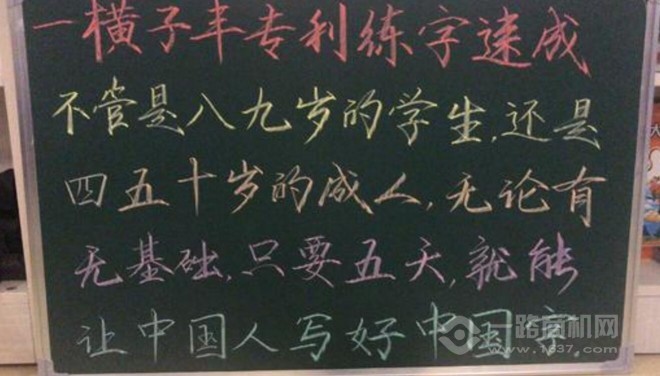 一横子丰专利练字速成
不管是八九岁的学生,还是
四五十岁的成人,无论有
无基础,只要五天,就能
让中国人写好中国字.
一路商机网
www.1637.com